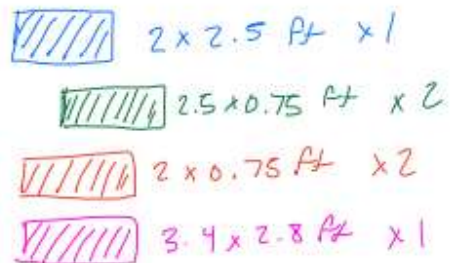 2 x 2.5 ft x 1
2.5 x 0.75 ft x 2
2 x 0.75 ft x 2
3.4 x 2.8 ft x 1